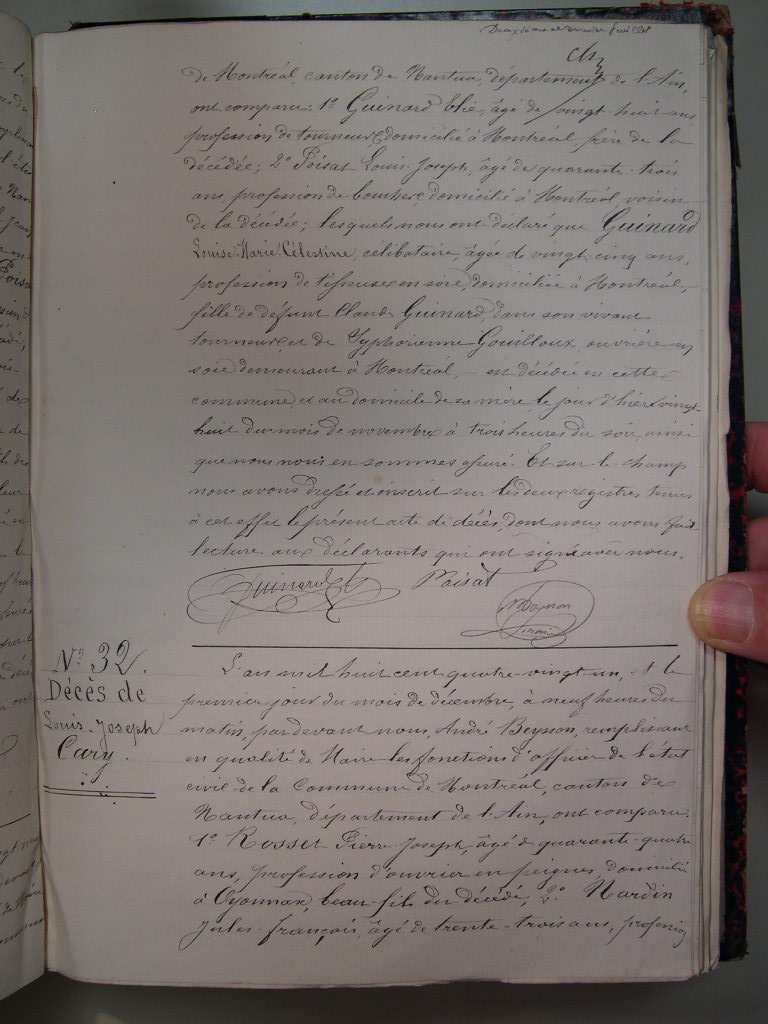 Deuxième et dernier feuillet
de Montréal, canton de Nantua, département de l'Ain,
ont comparu: 1º Guinard Elie, âgé de vingt-huit ans
profession de tourneur, domicilié à Montréal, frère de la
décédée; 2º Poisat Louis-Joseph, âgé de quarante-trois
ans, profession de boucher, domicilié à Montréal, voisin
de la décédée; lesquels nous ont déclaré que Guinard
Louise-Marie-Célestine, célibataire, âgée de vingt-cinq ans,
profession de tisseuse en soie, domiciliée à Montréal,
fille de défunt Claude Guinard, dans son vivant
tourneur, et de Symphorienne Gouilloux, ouvrière en
soie demeurant à Montréal, - est décédée en cette
commune, et au domicile de sa mère, le jour d'hier vingt-
huit du mois de novembre à trois heures du soir, ainsi
que nous nous en sommes assuré. Et sur le champ
nous avons dressé et inscrit sur les deux registres tenus
à cet effet le présent acte de décès, dont nous avons fait
lecture aux déclarants qui ont signé avec nous.
Guinard Poisat
Nº 32.
Décès de
Louis-Joseph
Cary.
L'an mil huit cent quatre-vingt un, et le
premier jour du mois de décembre, à neuf heures du
matin, par devant nous, André Beysson, remplissant
en qualité de Maire les fonctions d'officier de l'état
civil de la Commune de Montréal, canton de
Nantua, département de l'Ain, ont comparu:
1º Rosset Pierre Joseph, âgé de quarante-quatre
ans, profession d'ouvrier en peignes, domicilié
à Oyonnax, beau-fils du décédé, 2º Nardin
Jules-François, âgé de trente-trois ans, profession